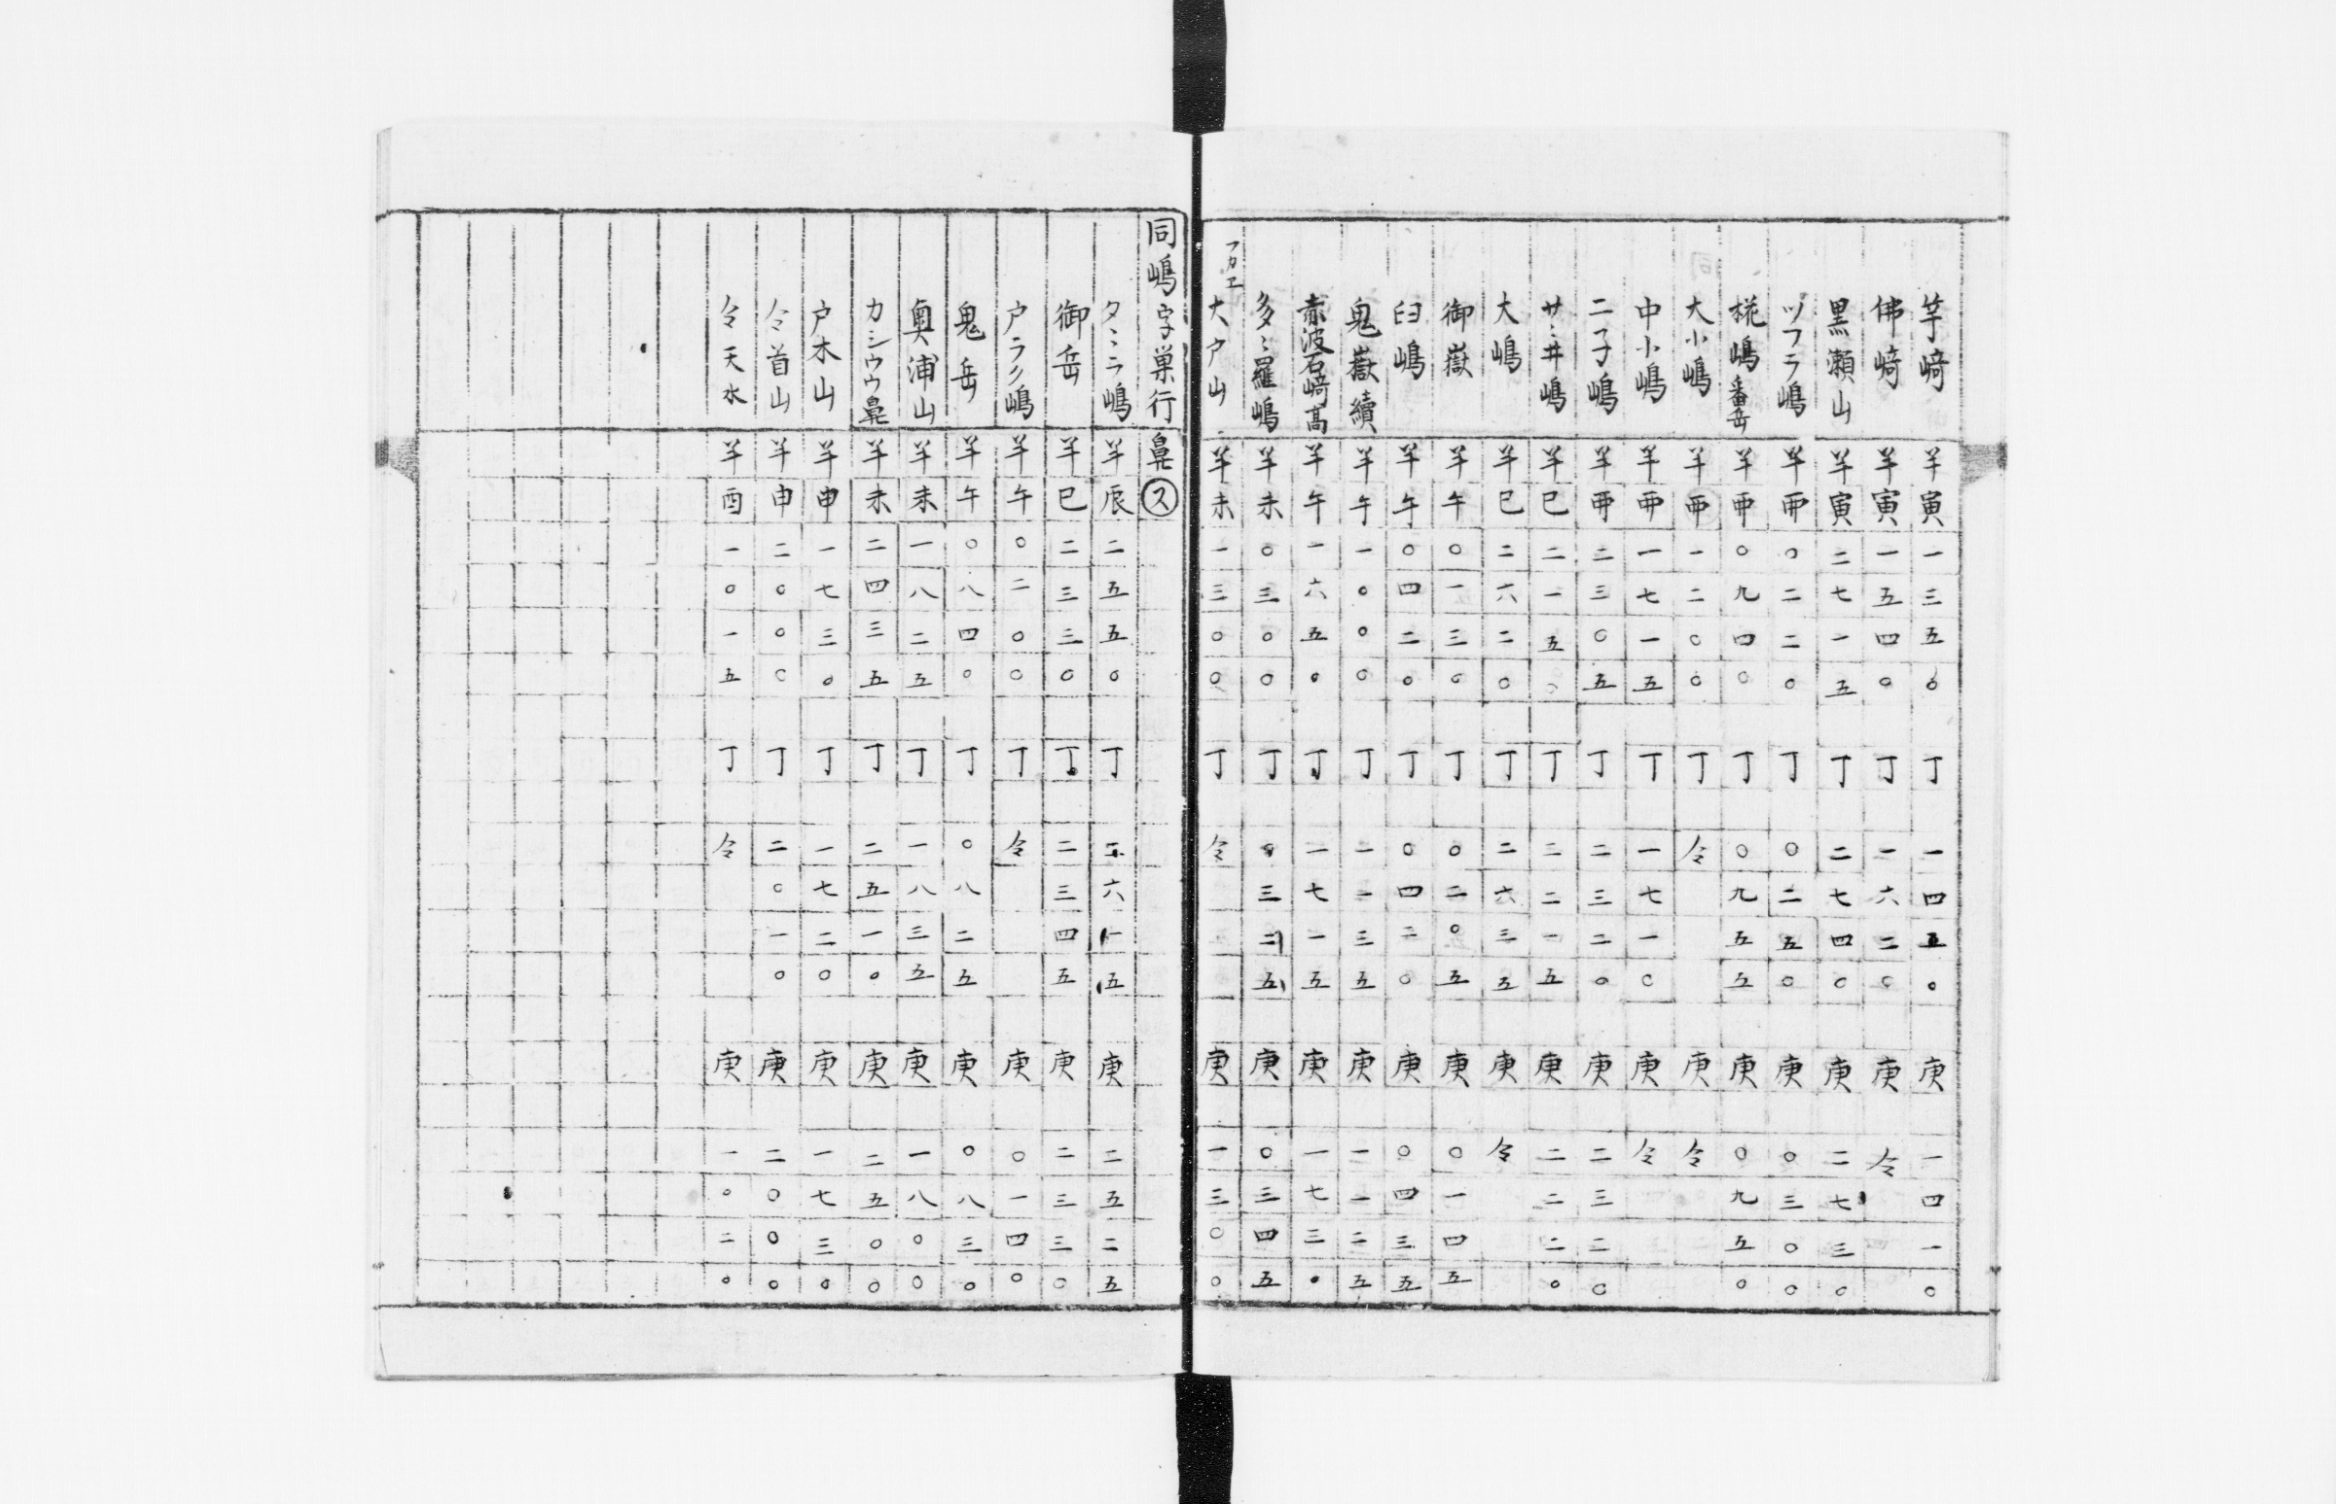 竿﨑 羊寅 一三五〇 丁 一四五〇 庚 一四一〇
佛﨑 羊寅 一五四〇 丁 一六二〇 庚 仝
黒瀬山 羊寅 二七一五 丁 二七四〇 庚 二七三〇
ツフラ嶋 羊丣 〇二二〇 丁 〇二五〇 庚 〇三〇〇
椛嶋番岳 羊丣 〇九四〇 丁 〇九五五 庚 〇九五〇
大小嶋 羊丣 一二〇〇 丁 仝 庚 仝
中小嶋 羊丣 一七一五 丁 一七一〇 庚 仝
二子嶋 羊丣 二三〇五 丁 二三二〇 庚 二三二〇
サヽ井嶋 羊巳 二一五〇 丁 二二一五 庚 二二二〇
大嶋 羊巳 二六二〇 丁 二六三五 庚 仝
御嶽 羊午 〇一三〇 丁 〇二〇五 庚 〇一四五
臼嶋 羊午 〇四二〇 丁 〇四二〇 庚 〇四三五
鬼嶽續 羊午 一〇〇〇 丁 一一三五 庚 一一二五
赤波石﨑髙 羊午 一六五〇 丁 一七一五 庚 一七三〇
多〻羅嶋 羊未 〇三〇〇 丁 〇三二五 庚 〇三四五
フカエ
大戸山 羊未 一三〇〇 丁 仝 庚 一三〇〇
同嶋字巣行鼻 ㋜
タヽラ嶋 羊辰 二五五〇 丁 二六一五 庚 二五二五
御岳 羊巳 二三三〇 丁 二三四五 庚 二三三〇
戸ラク嶋 羊午 〇二〇〇 丁 仝 庚 〇一四〇
鬼岳 羊午 〇八四〇 丁 〇八二五 庚 〇八三〇
奥浦山 羊未 一八二五 丁 一八三五 庚 一八〇〇
カシウウ鼻 羊未 二四三五 丁 二五一〇 庚 二五〇〇
戸木山 羊申 一七三〇 丁 一七二〇 庚 一七三〇
仝首山 羊申 二〇〇〇 丁 二〇一〇 庚 二〇〇〇
仝天水 羊酉 一〇一五 丁 仝 庚 一〇二〇